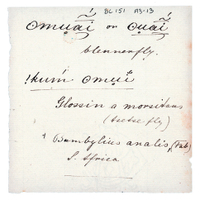 BC 151 A3-13
omuai or ouai
blennerfly.
!kum omui
Glossina morsitans
(tsetse fly)
Bombylius analis, (Fab)
S. Africa